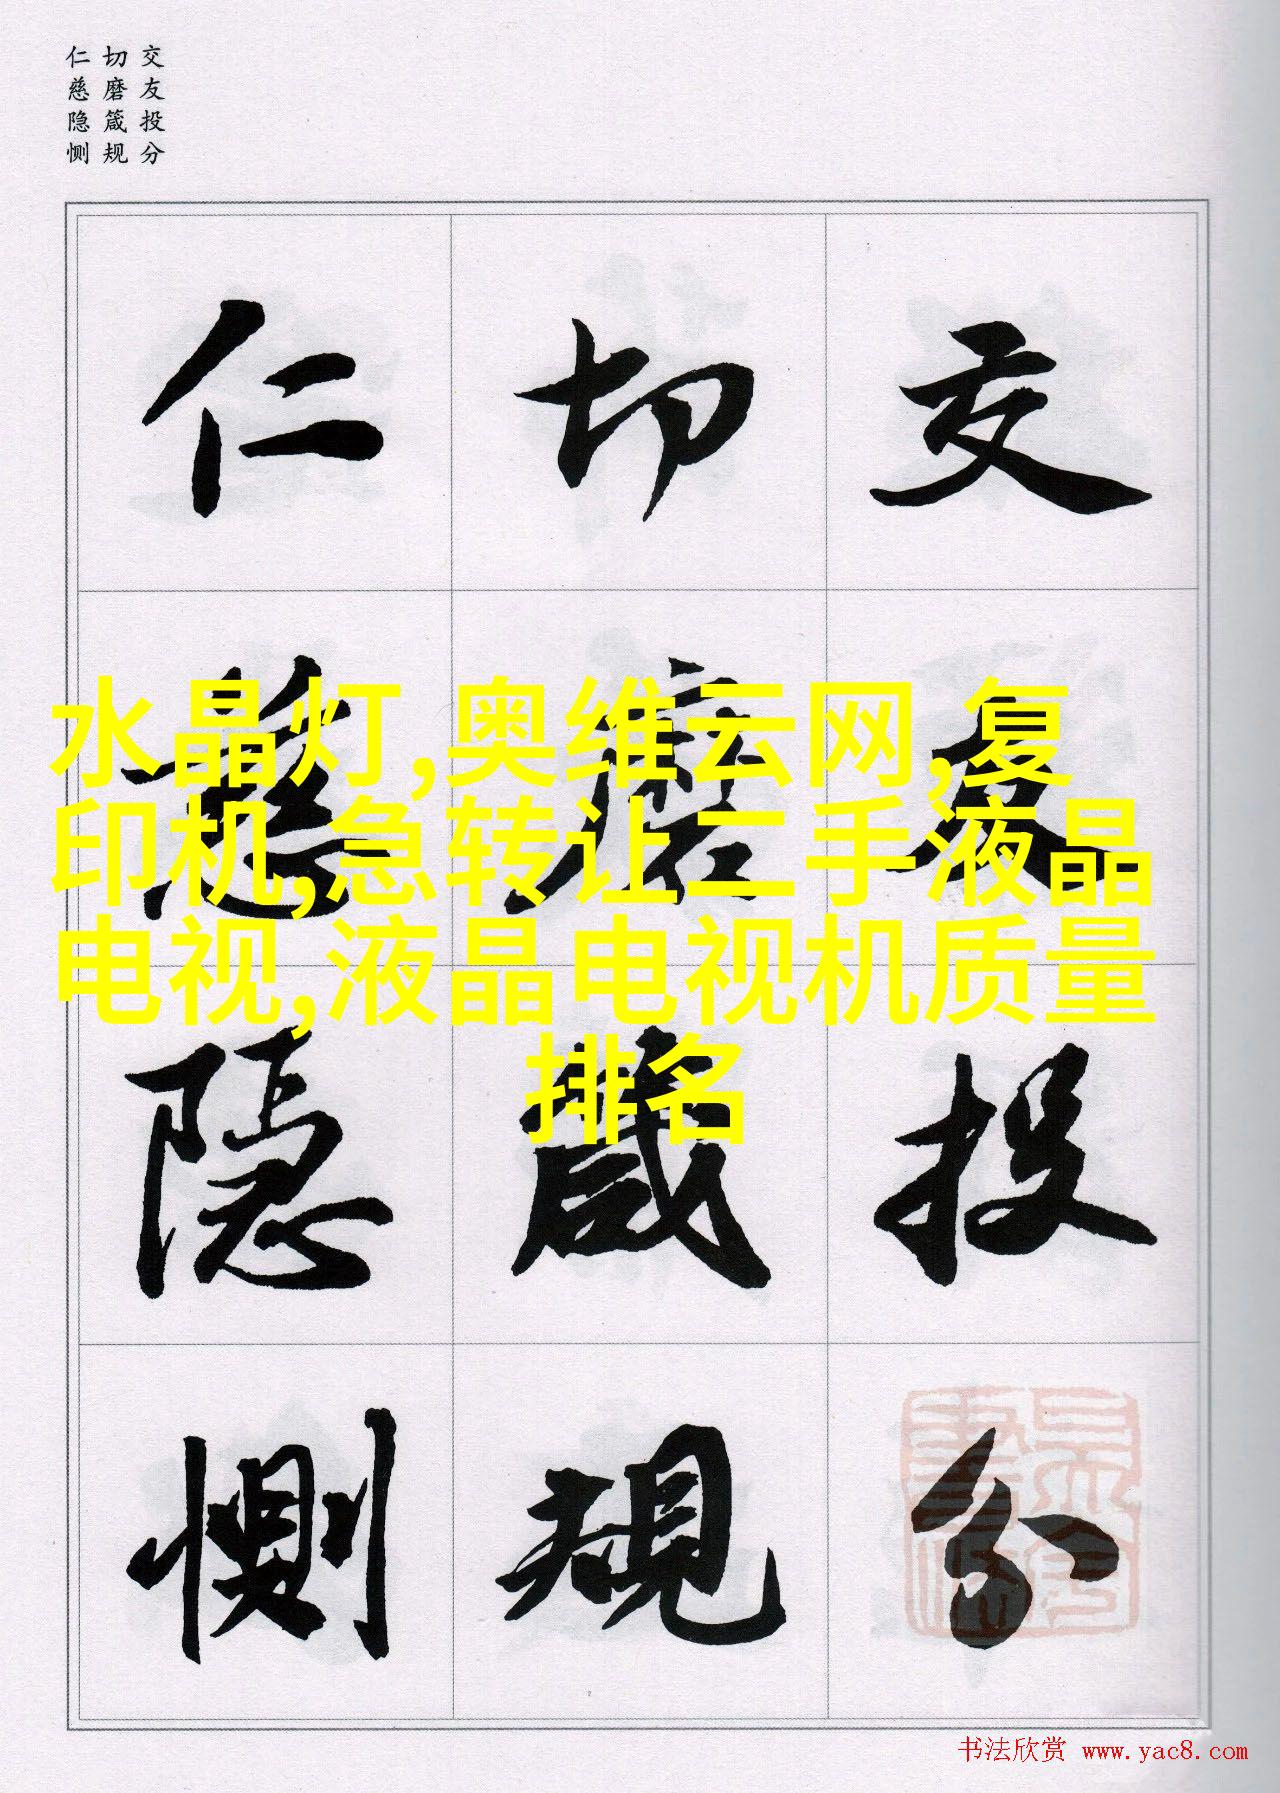 交友投分
切磨箴规
仁慈隐恻
仁 切 交
慈 磨 友
隐 箴 投
恻 規 分
水晶灯,奥维云网,复
印机,急转让二手液晶
电视,液晶电视机质量
排名
书法欣赏 www.yac8.com